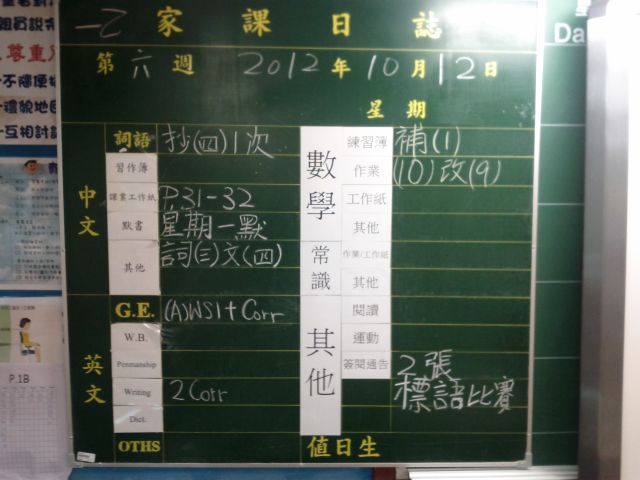 一乙 家課日誌
第六週 2012年10月12日
星期
詞語 抄(四)1次
習作簿
課業工作紙 P.31-32
默書 星期一默
其他 詞(三)文(四)
中文
G.E. (A)WS1+Corr
W.B.
Penmanship
Writing 2Corr
Dict.
英文
OTHS
數學
練習簿 補(1)
作業 (10)改(9)
工作紙
其他
常識
作業/工作紙
其他
其他
閱讀
運動
簽閱通告 2張
標語比賽
值日生
Da
組員說
尊重
不隨便
禮貌地
互相討
P.1B